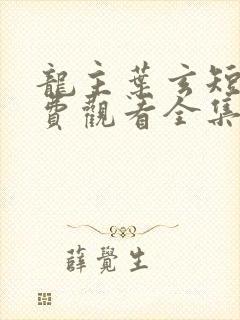 龍主葉玄短
費觀看全集
薛覺生